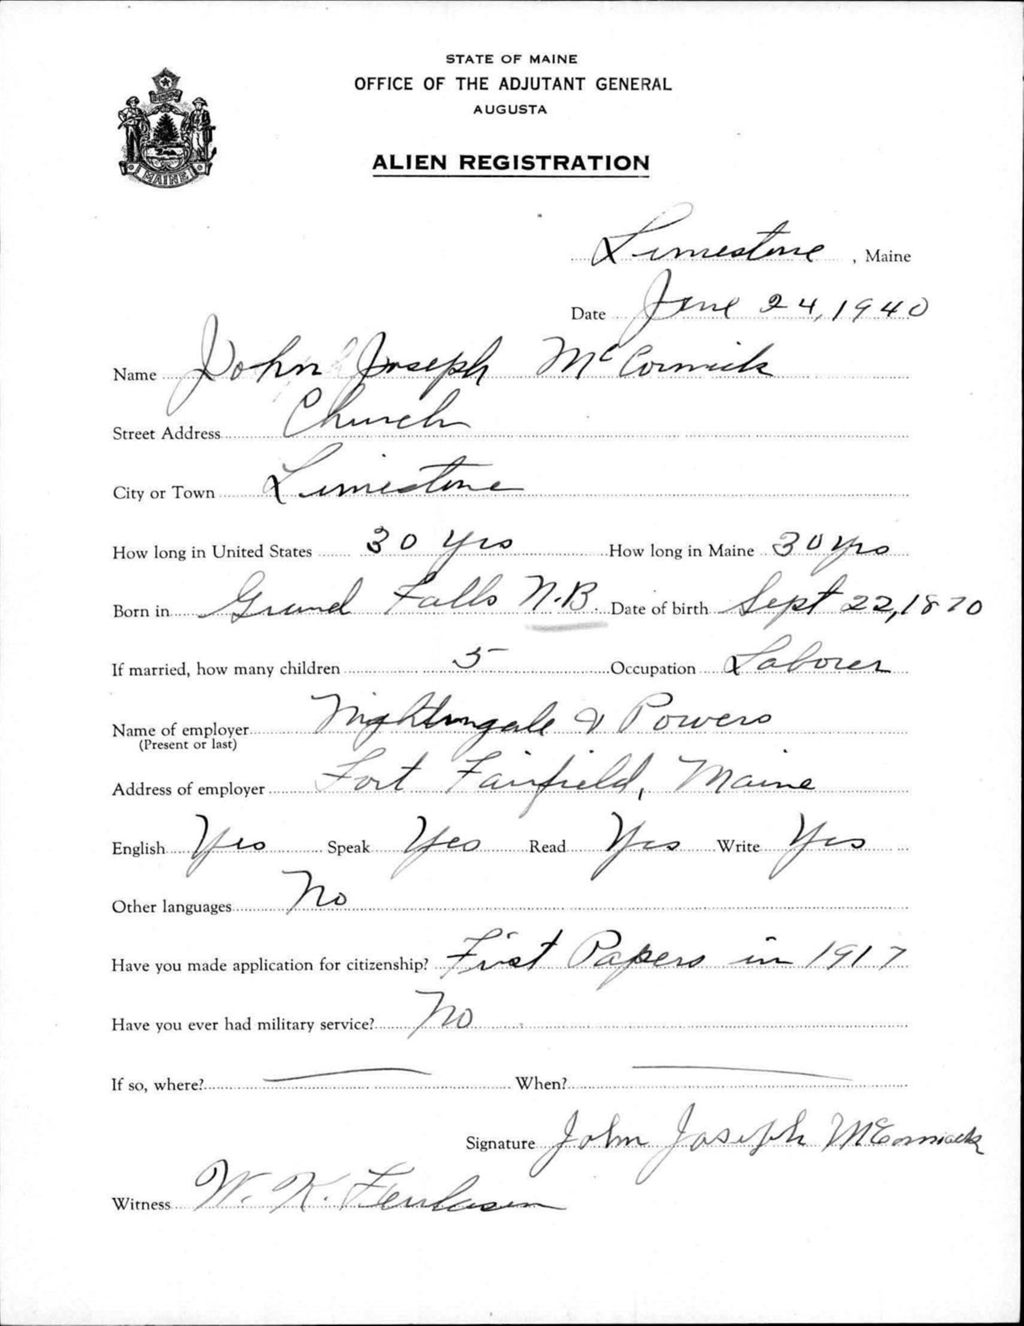 STATE OF MAINE
OFFICE OF THE ADJUTANT GENERAL
AUGUSTA
ALIEN REGISTRATION
MAINE
Limestone, Maine
Date June 24, 1940
Name John Joseph McCormick
Street Address Church
City or Town Limestone
How long in United States 30 yrs How long in Maine 30 yrs
Born in Grand Falls N.B. Date of birth Sept 22, 1870
If married, how many children 5 Occupation Laborer
Name of employer Nightingale & Powers
(Present or last)
Address of employer Fort Fairfield, Maine
English Yes Speak Yes Read Yes Write Yes
Other languages No
Have you made application for citizenship? First Papers in 1917
Have you ever had military service? No
If so, where? When?
Signature John Joseph McCormick
Witness W. K.